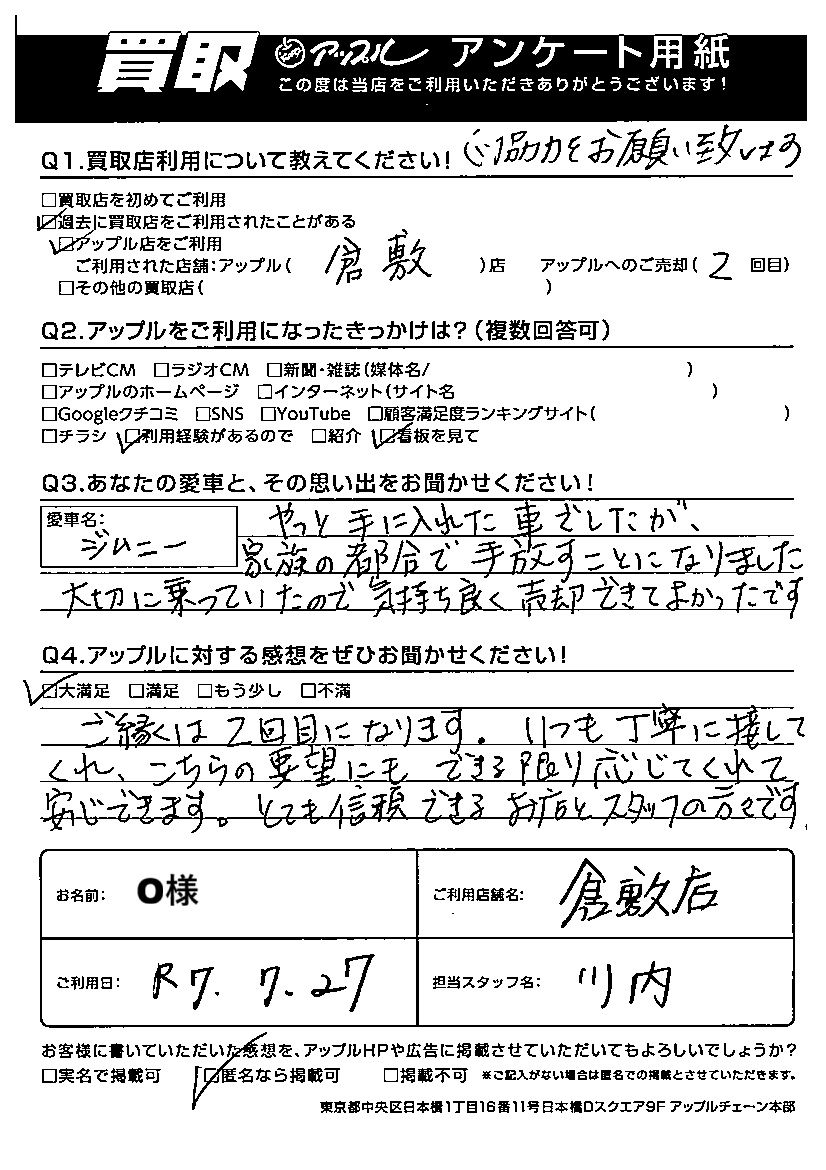 買取 アップル アンケート用紙
この度は当店をご利用いただきありがとうございます！
Q1.買取店利用について教えてください！ ご協力をお願い致します
□買取店を初めてご利用
☑過去に買取店をご利用されたことがある
☑アップル店をご利用
ご利用された店舗：アップル（ 倉敷 ）店 アップルへのご売却（ 2 回目）
□その他の買取店（ ）
Q2.アップルをご利用になったきっかけは？（複数回答可）
□テレビCM □ラジオCM □新聞・雑誌（媒体名/ ）
□アップルのホームページ □インターネット（サイト名 ）
□Googleクチコミ □SNS □YouTube □顧客満足度ランキングサイト（ ）
□チラシ ☑利用経験があるので □紹介 ☑看板を見て
Q3.あなたの愛車と、その思い出をお聞かせください！
愛車名：
ジムニー
やっと手に入れた車でしたが、
家族の都合で手放すことになりました
大切に乗っていたので気持ち良く売却できてよかったです
Q4.アップルに対する感想をぜひお聞かせください！
☑大満足 □満足 □もう少し □不満
ご縁は2回目になります。いつも丁寧に接して
くれ、こちらの要望にもできる限り応じてくれて
安心できます。とても信頼できるお店とスタッフの方々です
お名前： O様 ご利用店舗名： 倉敷店
ご利用日： R7. 7. 27 担当スタッフ名： 川内
お客様に書いていただいた感想を、アップルHPや広告に掲載させていただいてもよろしいでしょうか？
□実名で掲載可 ☑匿名なら掲載可 □掲載不可 ※ご記入がない場合は匿名での掲載とさせていただきます。
東京都中央区日本橋1丁目16番11号日本橋Dスクエア9F アップルチェーン本部